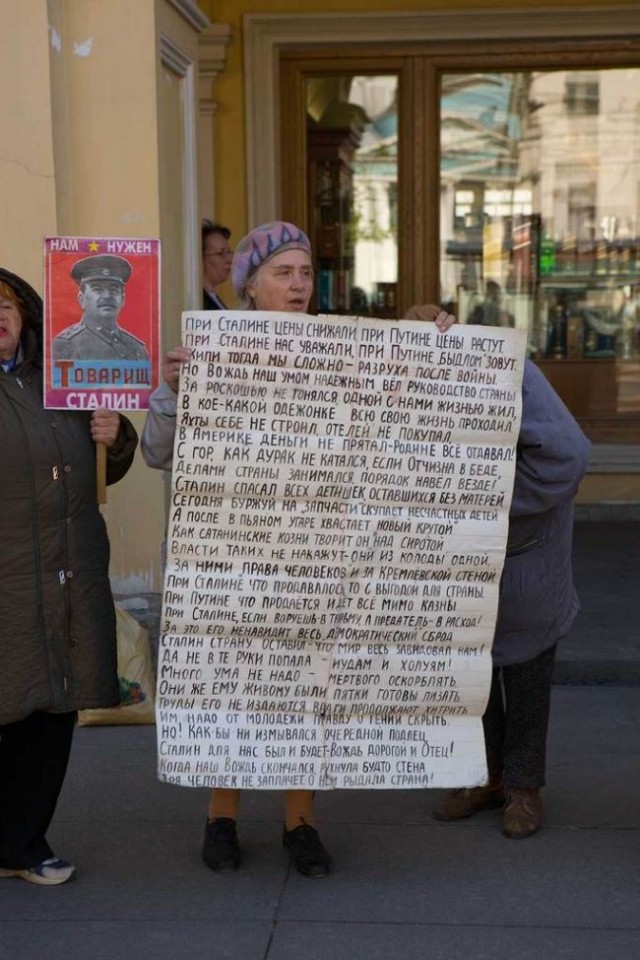 НАМ НУЖЕН
ТОВАРИЩ
СТАЛИН
ПРИ СТАЛИНЕ ЦЕНЫ СНИЖАЛИ, ПРИ ПУТИНЕ ЦЕНЫ РАСТУТ.
ПРИ СТАЛИНЕ НАС УВАЖАЛИ, ПРИ ПУТИНЕ „БЫДЛОМ" ЗОВУТ.
ЖИЛИ ТОГДА МЫ СЛОЖНО - РАЗРУХА ПОСЛЕ ВОЙНЫ.
НО ВОЖДЬ НАШ УМОМ НАДЕЖНЫМ ВЁЛ РУКОВОДСТВО СТРАНЫ
ЗА РОСКОШЬЮ НЕ ГОНЯЛСЯ, ОДНОЙ С НАМИ ЖИЗНЬЮ ЖИЛ,
В КОЕ-КАКОЙ ОДЕЖОНКЕ ВСЮ СВОЮ ЖИЗНЬ ПРОХОДИЛ.
ЯХТЫ СЕБЕ НЕ СТРОИЛ, ОТЕЛЕЙ НЕ ПОКУПАЛ,
В АМЕРИКЕ ДЕНЬГИ НЕ ПРЯТАЛ-РОДИНЕ ВСЁ ОТДАВАЛ!
С ГОР, КАК ДУРАК НЕ КАТАЛСЯ, ЕСЛИ ОТЧИЗНА В БЕДЕ,
ДЕЛАМИ СТРАНЫ ЗАНИМАЛСЯ, ПОРЯДОК НАВЁЛ ВЕЗДЕ!
СТАЛИН СПАСАЛ ВСЕХ ДЕТИШЕК, ОСТАВШИХСЯ БЕЗ МАТЕРЕЙ
СЕГОДНЯ БУРЖУЙ НА „ЗАПЧАСТИ" СКУПАЕТ НЕСЧАСТНЫХ ДЕТЕЙ
А ПОСЛЕ В ПЬЯНОМ УГАРЕ ХВАСТАЕТ „НОВЫЙ КРУТОЙ"
КАК САТАНИНСКИЕ КОЗНИ ТВОРИТ ОН НАД СИРОТОЙ
ВЛАСТИ ТАКИХ НЕ НАКАЖУТ-ОНИ ИЗ КОЛОДЫ ОДНОЙ.
ЗА НИМИ „ПРАВА ЧЕЛОВЕКОВ" И ЗА КРЕМЛЕВСКОЙ СТЕНОЙ
ПРИ СТАЛИНЕ ЧТО ПРОДАВАЛОСЬ, ТО С ВЫГОДОЙ ДЛЯ СТРАНЫ
ПРИ ПУТИНЕ ЧТО ПРОДАЁТСЯ ИДЁТ ВСЁ МИМО КАЗНЫ
ПРИ СТАЛИНЕ, ЕСЛИ ВОРУЕШЬ-В ТЮРЬМУ, А ПРЕДАТЕЛЬ-В РАСХОД!
ЗА ЭТО ЕГО НЕНАВИДИТ ВЕСЬ ДЕМОКРАТИЧЕСКИЙ СБРОД
СТАЛИН СТРАНУ ОСТАВИЛ-ЧТО МИР ВЕСЬ ЗАВИДОВАЛ НАМ!
ДА НЕ В ТЕ РУКИ ПОПАЛА - ИУДАМ И ХОЛУЯМ!
МНОГО УМА НЕ НАДО - МЕРТВОГО ОСКОРБЛЯТЬ.
ОНИ ЖЕ ЕМУ ЖИВОМУ БЫЛИ ПЯТКИ ГОТОВЫ ЛИЗАТЬ
ТРУДЫ ЕГО НЕ ИЗДАЮТСЯ ВЛАСТИ ПРОДОЛЖАЮТ ХИТРИТЬ
ИМ НАДО ОТ МОЛОДЕЖИ ПРАВДУ О ГЕНИИ СКРЫТЬ.
НО! КАК-БЫ НИ ИЗМЫВАЛСЯ ОЧЕРЕДНОЙ ПОДЛЕЦ
СТАЛИН ДЛЯ НАС БЫЛ И БУДЕТ-ВОЖДЬ ДОРОГОЙ И ОТЕЦ!
КОГДА НАШ ВОЖДЬ СКОНЧАЛСЯ, РУХНУЛА БУДТО СТЕНА
ЗРЯ ЧЕЛОВЕК НЕ ЗАПЛАЧЕТ О НЁМ РЫДАЛА СТРАНА!